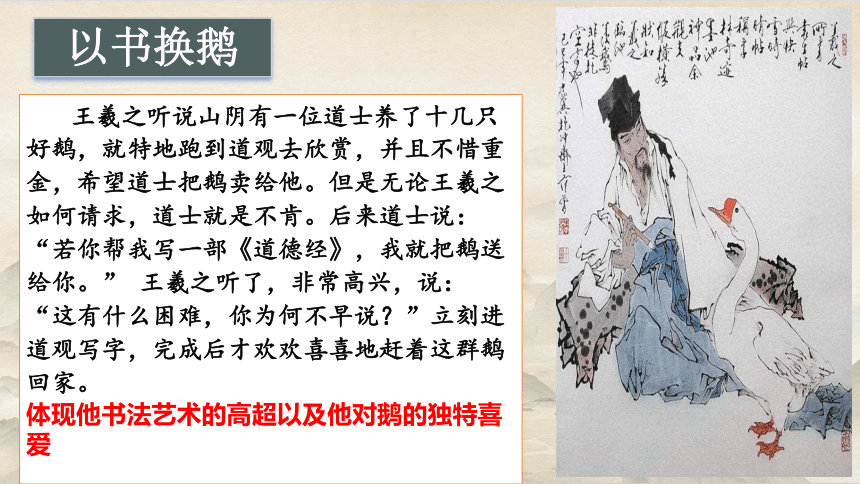 以书换鹅
王羲之听说山阴有一位道士养了十几只
好鹅，就特地跑到道观去欣赏，并且不惜重
金，希望道士把鹅卖给他。但是无论王羲之
如何请求，道士就是不肯。后来道士说：
“若你帮我写一部《道德经》，我就把鹅送
给你。” 王羲之听了，非常高兴，说：
“这有什么困难，你为何不早说？”立刻进
道观写字，完成后才欢欢喜喜地赶着这群鹅
回家。
体现他书法艺术的高超以及他对鹅的独特喜
爱